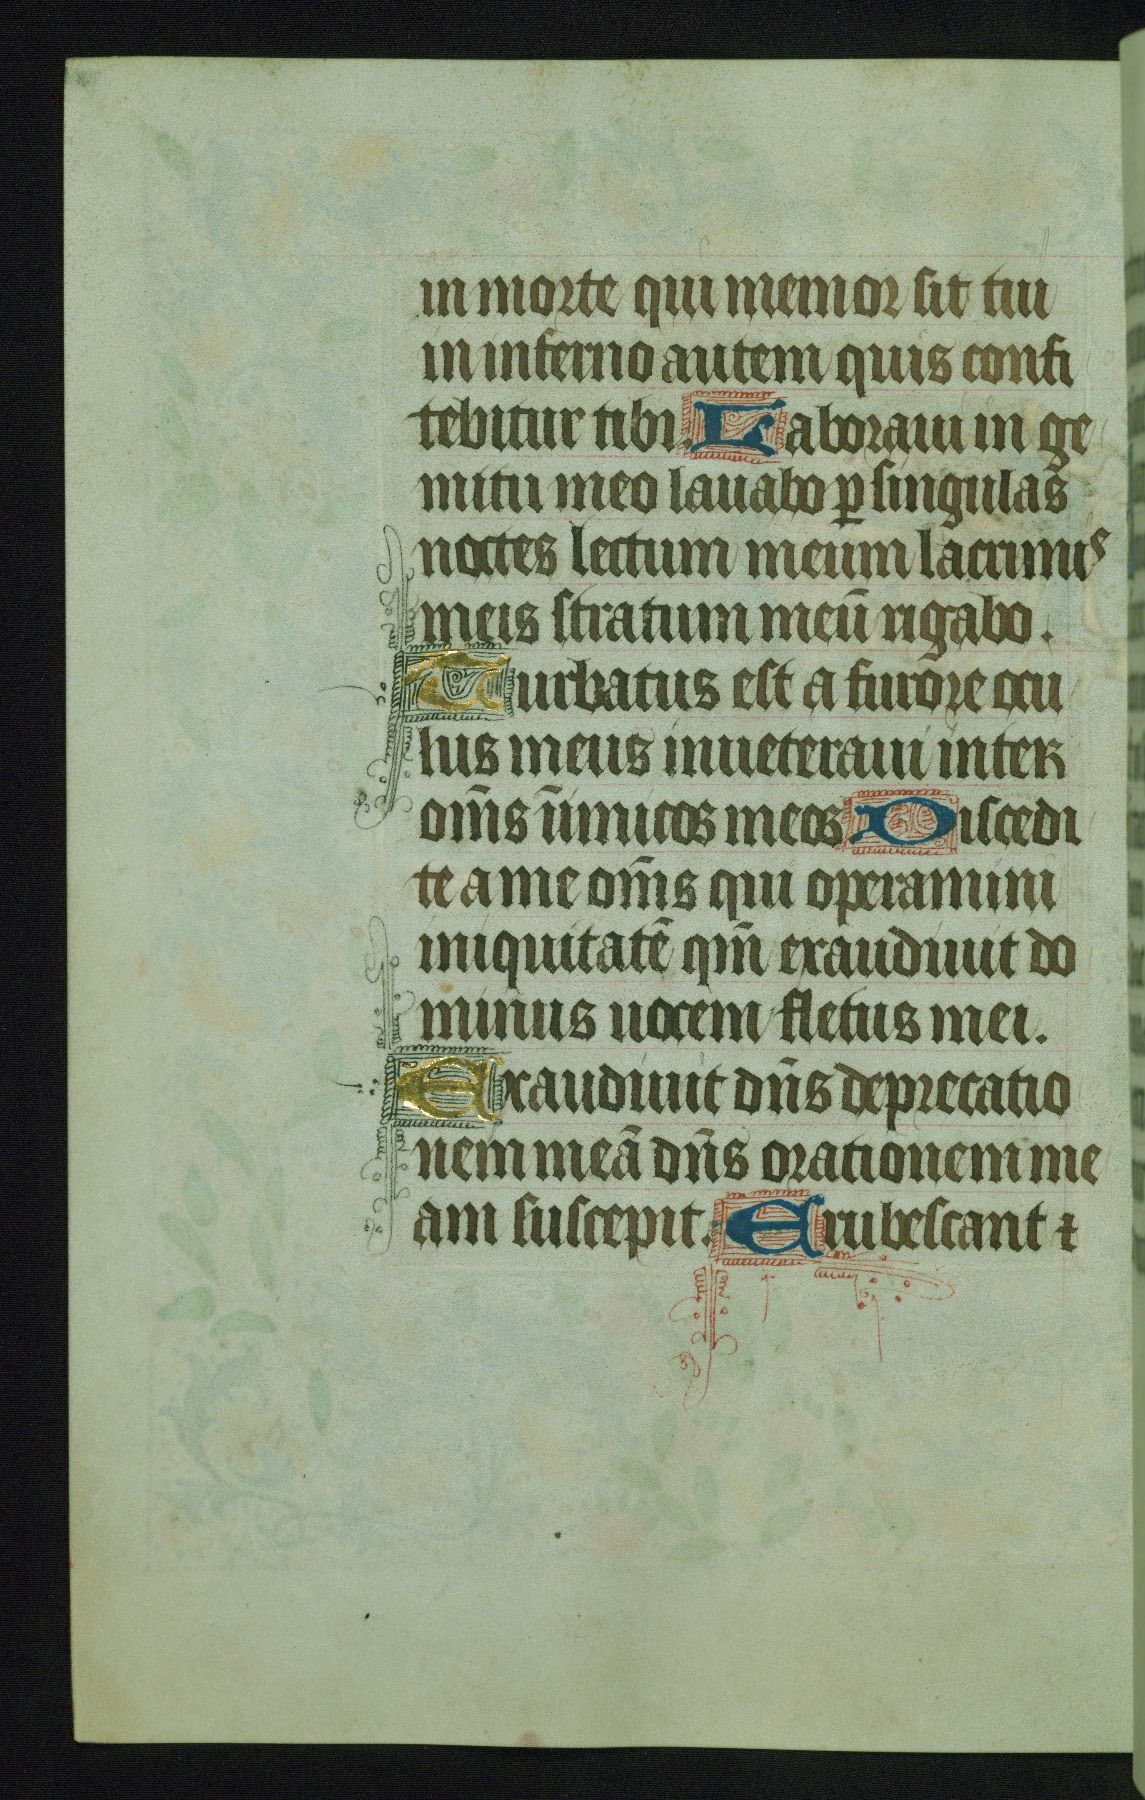 in morte qui memor sit tui
in inferno autem quis confi
tebitur tibi. Laboraui in ge
mitu meo lauabo ꝑ singulas
noctes lectum meum lacrimis
meis stratum meū rigabo.
Turbatus est a furore ocu
lus meus inueteraui inter
om̄s inimicos meos. Discedi
te a me om̄s qui operamini
iniquitatē qm̄ exaudiuit do
minus uocem fletus mei.
Exaudiuit dn̄s deprecatio
nem meā dn̄s orationem me
am suscepit. Erubescant ⁊